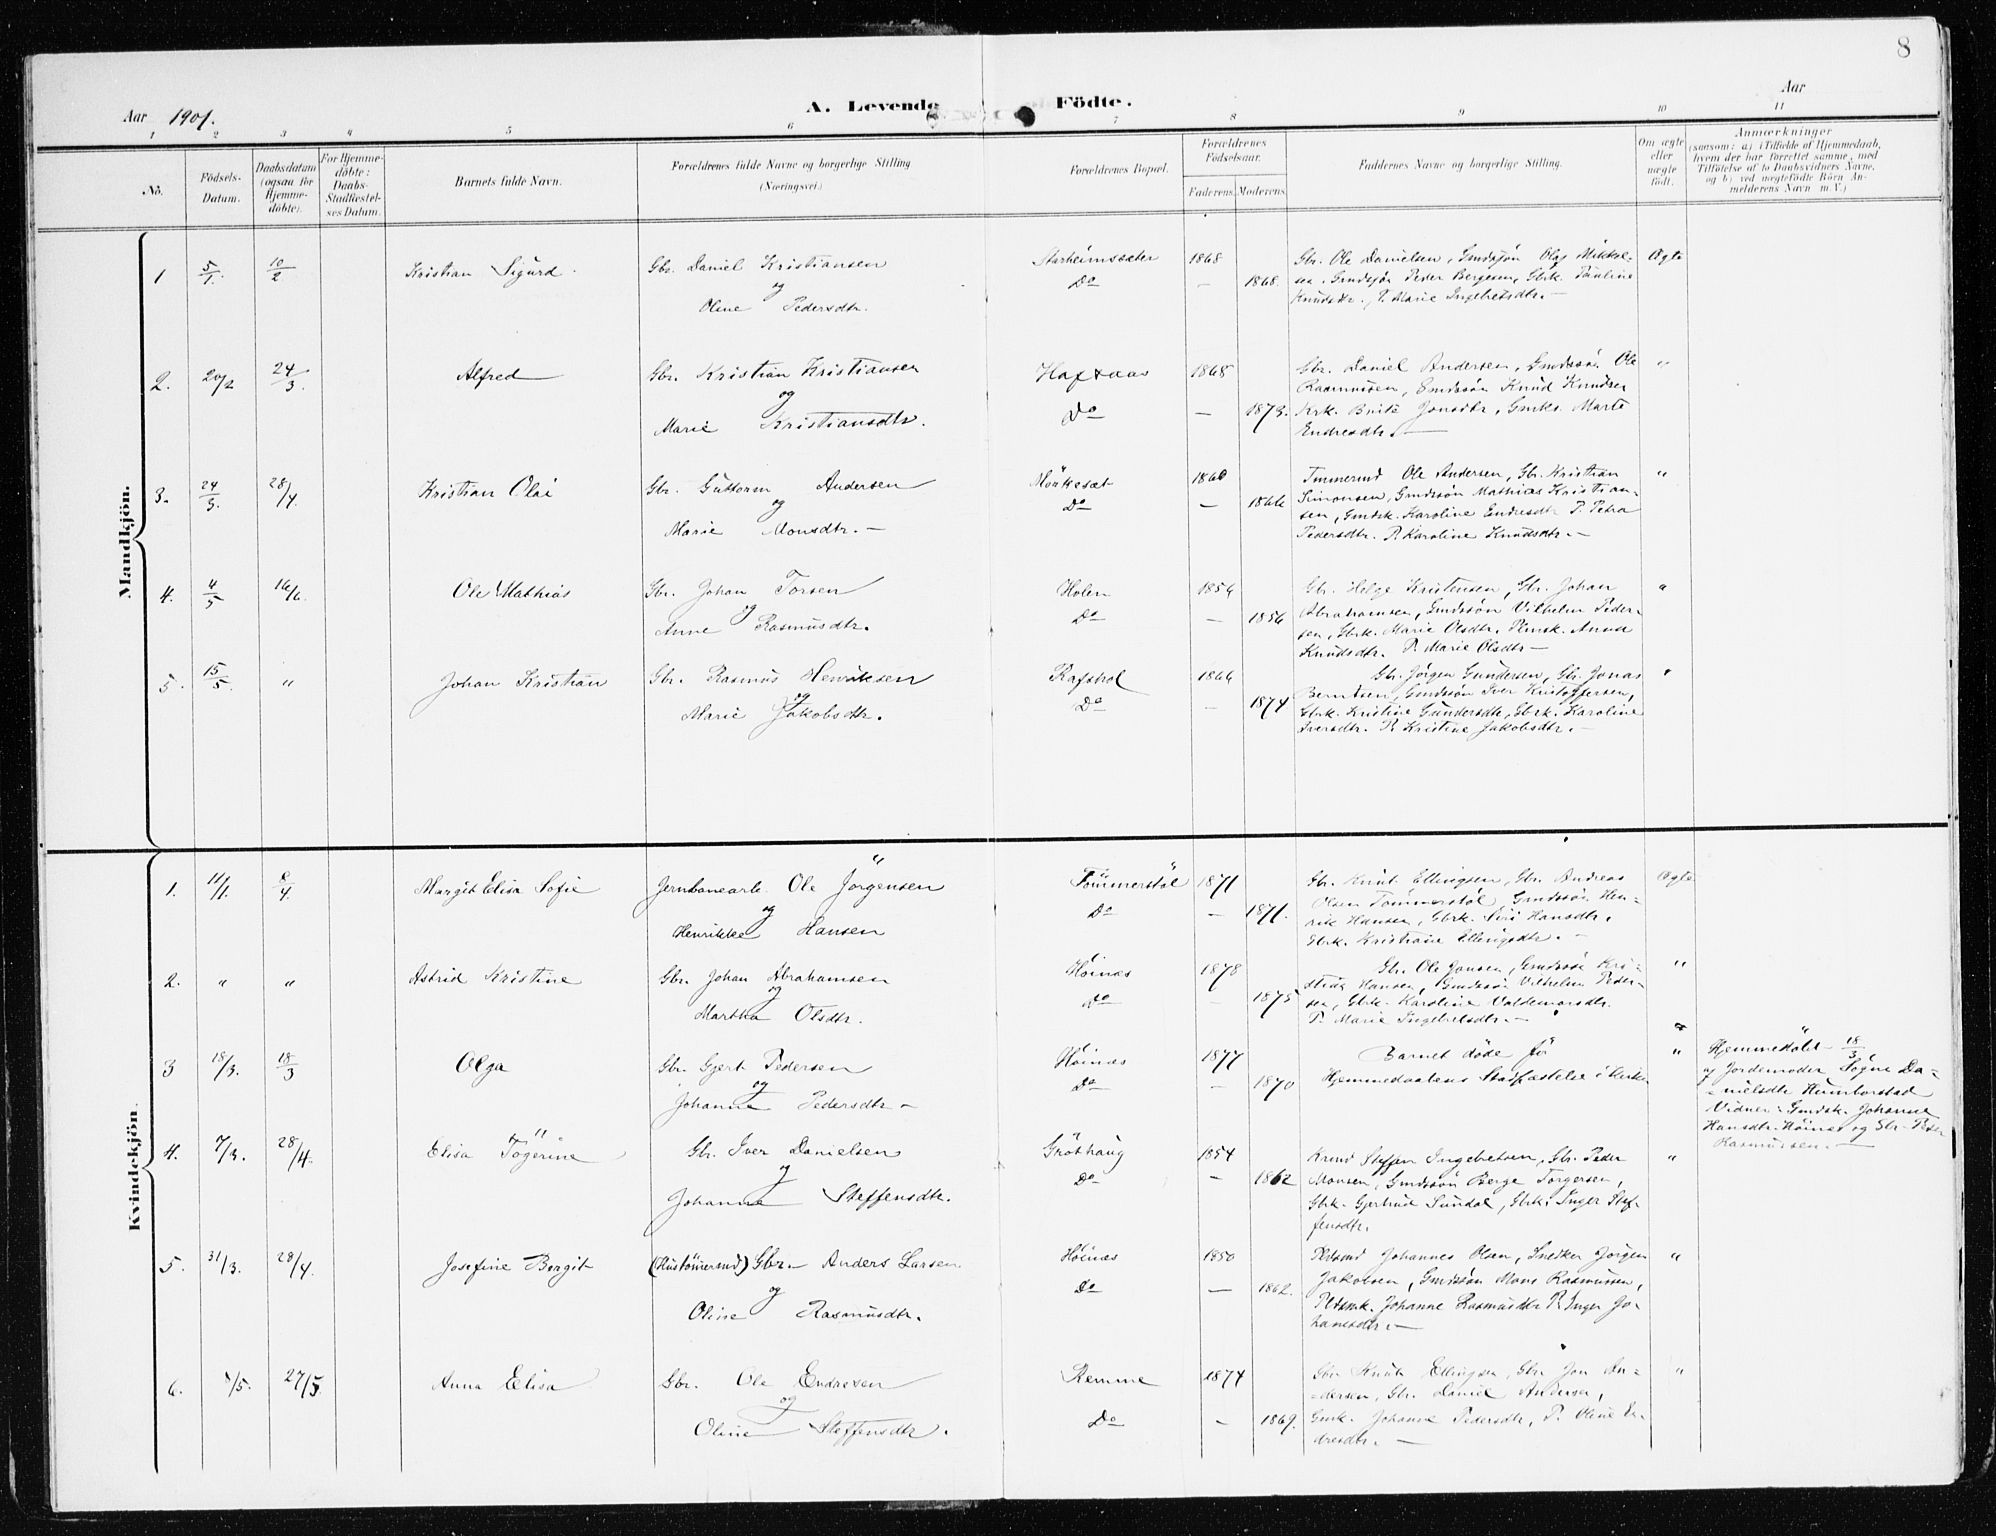 8
A. Levende Födte.
Aar 1901.
Aar
1 2 3 4 5 6 7 8 9 10 11
Nö.
Födsels-Datum.
Daabsdatum (ogsaa for Hjemme-döbte).
For Hjemme-döbte: Daabs-Stadfæstel-ses Datum.
Barnets fulde Navn.
Forældrenes fulde Navne og borgerlige Stilling (Næringsvei.)
Forældrenes Bopæl.
Forældrenes Födselsaar.
Faderens. Moderens.
Faddernes Navne og borgerlige Stilling.
Om ægte eller uægte födt.
Anmærkninger
(saasom: a) i Tilfælde af Hjemmedaab,
hvem der har forrettet samme, med
Tilföielse af to Daabsvidners Navne,
og b) ved uægtefödte Börn An-
melderens Navn m. V.)
Mandkjön.
1 5/1. 10/2 Kristian Sigurd. Gbr. Daniel Kristiansen Starheimsæter 1868 Gbr. Ole Danielsen, Gmdssön Olaj Mikkel- Ægte
og Do — 1868. sen, Gmdssön Peder Bergesen, Gbrk. Pauline
Oline Pedersdtr. Knudsdtr. P. Marie Ingebretsdtr. —
2. 20/2 24/3. Alfred Gbr. Kristian Kristiansen 1868 Gbr. Daniel Andersen, Gmdssön Ole "
og Do — 1873. Rasmussen, Gmdssön Knud Knudsen
Marie Kristiansdtr. Krk. Brite Jonsdtr, Gmks. Marte
Endresdtr. —
3. 24/3. 28/4. Kristian Olai Gbr. Guttorm Andersen 1860 Tømmermd Ole Andersen, Gbr. Kristian "
og Do — 1866 Simonsen, Gmdssön Mathias Kristian-
Marie Monsdtr. — sen, Gmdsk. Karoline Endresdtr P. Petra
Pedersdtr. P. Karoline Knudsdtr. —
4. 4/5 16/6. Ole Mathias Gbr. Johan Torsen Holen 1856 Gbr. Helge Kristensen, Gbr. Johan "
og Do — 1856 Abrahamsen, Gmdssön Vilhelm Peder-
Anne Rasmusdtr. sen, Gbrk. Marie Olsdtr. Anne
Knudsdtr. P. Marie Olsdtr —
5. 15/5. " Johan Kristian Gbr. Rasmus Henriksen Rafstol 1866 Gbr. Jörgen Gundersen, Gbr. Jonas "
og Do — 1874 Berntsen, Gmdssön Iver Kristoffersen,
Marie Jakobsdtr. Gbrk. Kristine Gundersdtr, Gbrk. Karoline
Iversdtr. P. Kristine Jakobsdtr. —
Kvindekjön.
1. 11/1. 8/4 Margit Elisa Sofie Jernbanearb. Ole Jörgensen Tömmerstöl 1871 Gbr. Knut Ellingsen, Gbr. Andreas Ægte
og Do — 1871. Olsen Tömmerstöl, Gmdssön Hen-
Henrikke Hansen rik Hansen, Gbrk. Siri Hansdtr.
Gbrk. Kristiane Ellingsdtr. —
2. " " Astrid Kristine Gbr. Johan Abrahamsen Höinæs 1878 Gbr. Ole Jonsen, Gmdssön Kri- "
og Do — 1875 stian Hansen, Gmdssön Vilhelm Peder-
Martha Olsdtr. sen, Gbrk. Karoline Valdemarsdtr.
P. Marie Ingebretsdtr. —
3 18/3. 18/3 Olga Gbr. Gjert Pedersen Höinæs 1877 Barnet döde för " Hjemmedöbt 18/3
og Do — 1870 Hjemmedaabens Stadfæstelse i Kirken af Jordemoder Da-
Johanne Pedersdtr — nielsdtr Humborstad
Vidner: Gmdsk. Johanne
Hansdtr. Höinæs og Gbr. Peder
Rasmussen. —
4. 7/3. 28/4. Elisa Tögerine Gbr. Iver Danielsen Gröthaug 1854 Steffen Ingebretsen, Gbr. Peder "
og Do — 1862 Monsen, Gmdssön Berge Torgersen,
Johanne Steffensdtr. Gbrk. Gjertrud Sundal, Gbrk. Inger Stef-
fensdtr.
5. 31/3. 28/4. Josefine Bergit (Hustömermd) Gbr. Anders Larsen Höinæs 1850 Johannes Olsen, Snedker Jörgen "
og Do — 1862. Jakobsen, Gmdssön Mons Rasmussen,
Oline Rasmusdtr. Johanne Rasmusdtr P. Inger Jo-
hansdtr. —
6. 7/5. 27/5 Anna Elisa Gbr. Ole Endresen Remme 1874 Gbr. Knut Ellingsen, Gbr. Jon An- "
og Do — 1869. dersen, Gbr. Daniel Andersen,
Oline Steffensdtr. Gmk. Johanne Pedersdtr, P. Oline En-
dresdtr. —